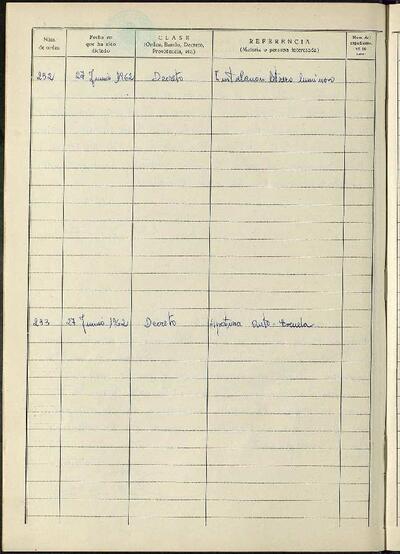 Núm. de orden
Fecha en que ha sido dictado
CLASE
(Orden, Bando, Decreto, Providencia, etc.)
REFERENCIA
(Materia o persona interesada)
Núm. del
232 27 Junio 1962 Decreto Instalacion letrero luminoso
233 27 Junio 1962 Decreto Apertura Auto-Escuela